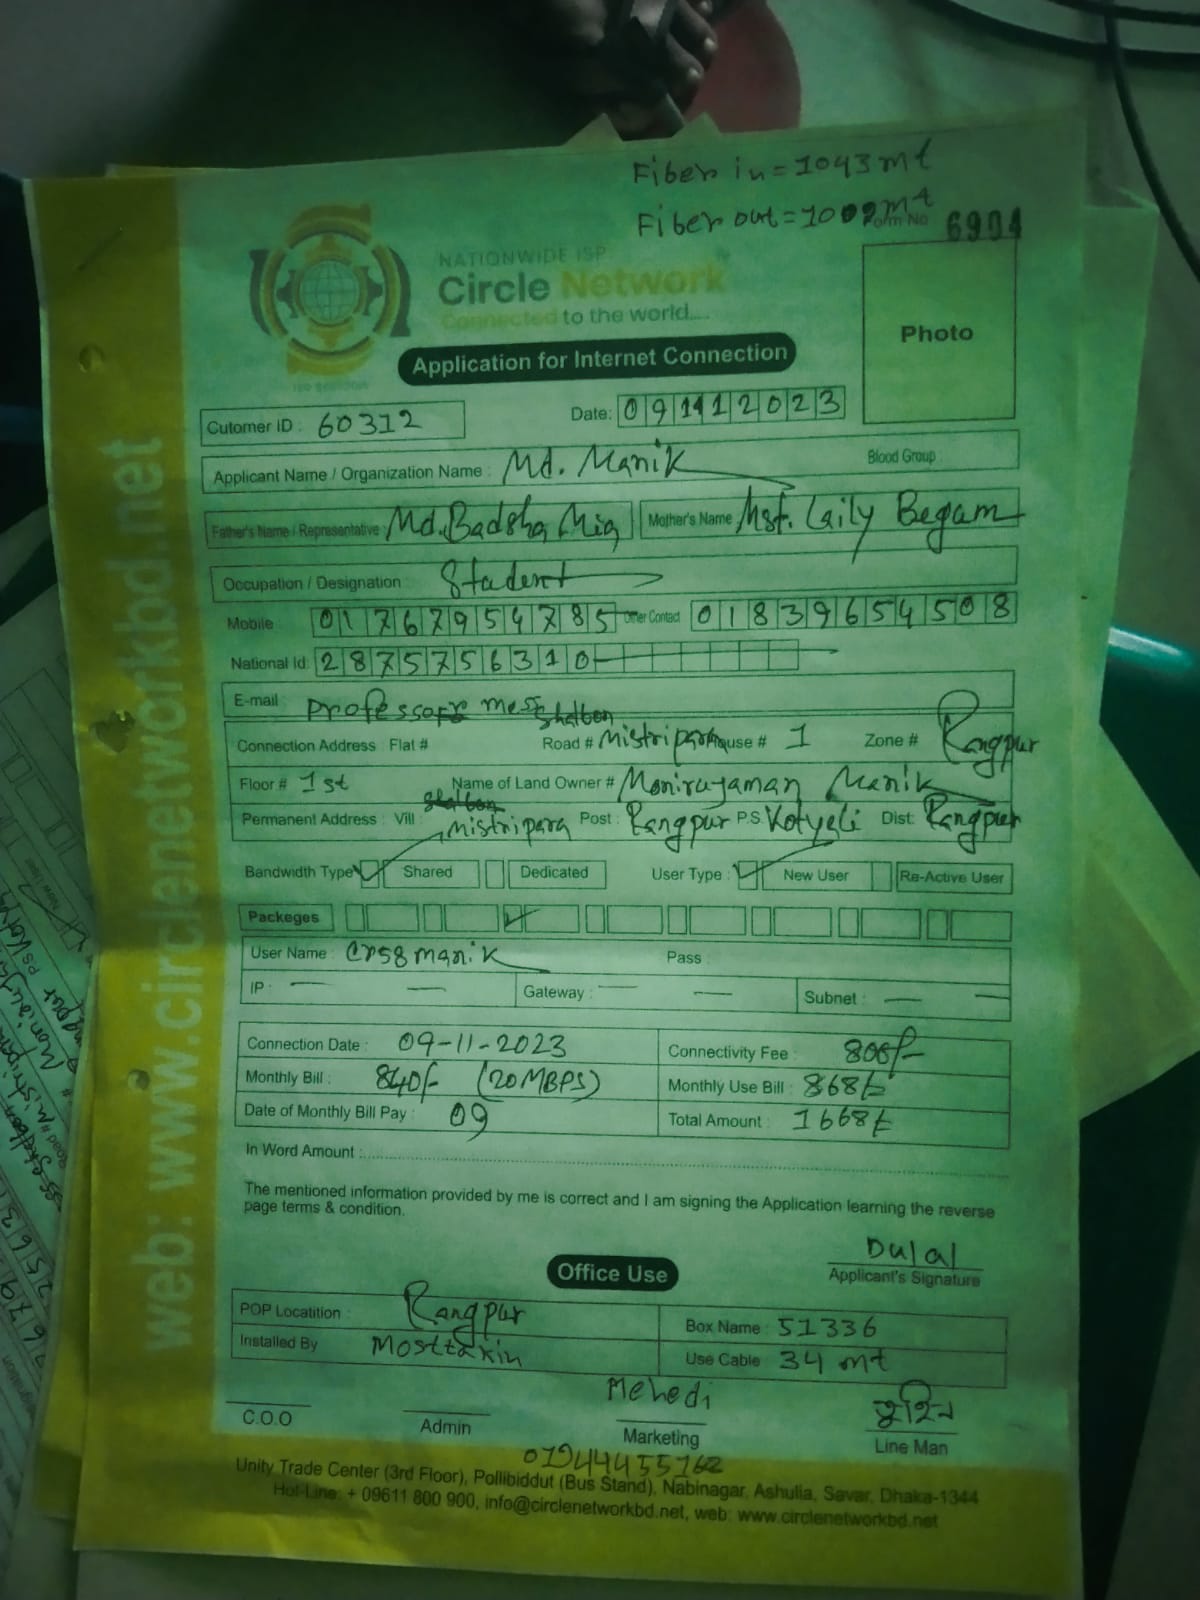 Fiber in = 1043 mt
Fiber out = 1009 mt
Form No 6904
NATIONWIDE ISP
Circle Network
Connected to the world....
Photo
Application for Internet Connection
Cutomer ID : 60312 Date: 09112023
Applicant Name / Organization Name : Md. Manik Blood Group :
Father's Name / Representative Md. Badsha Mia Mother's Name Mst. Laily Begam
Occupation / Designation Student
Mobile 01767954785 Other Contact 01839654508
National Id: 2875756310
E-mail : Professor mess
Shalbon
Connection Address : Flat # Road # Mistripara House # 1 Zone # Rangpur
Floor # 1st Name of Land Owner # Manik
Permanent Address : Vill : Mistripara Post : Rangpur P.S. Kotyali Dist: Rangpur
Bandwidth Type Shared Dedicated User Type : New User Re-Active User
Packeges
User Name : cr58manik Pass :
IP : Gateway : Subnet :
Connection Date : 09-11-2023 Connectivity Fee : 800/-
Monthly Bill : 840/- (20 MBPS) Monthly Use Bill : 868/-
Date of Monthly Bill Pay : 09 Total Amount : 1668/-
In Word Amount :
The mentioned information provided by me is correct and I am signing the Application learning the reverse
page terms & condition.
Dulal
Applicant's Signature
Office Use
POP Locatition : Rangpur Box Name : 51336
Installed By Mosttakin Use Cable 34 mt
Mehedi
C.O.O Admin Marketing Line Man
01944455162
Unity Trade Center (3rd Floor), Pollibiddut (Bus Stand), Nabinagar, Ashulia, Savar, Dhaka-1344
Hot-Line: + 09611 800 900, info@circlenetworkbd.net, web: www.circlenetworkbd.net
web: www.circlenetworkbd.net